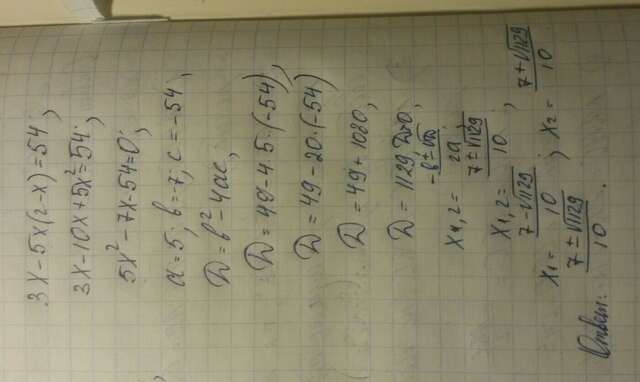 3x-5x(2-x)=54;
3x-10x+5x²=54;
5x²-7x-54=0;
a=5; b=7; c=-54;
D=b²-4ac;
D=49-4·5·(-54);
D=49-20·(-54)
D=49+1080;
D=1129, D>0;
x₁,₂ = (-b±√D)/2a
x₁,₂ = (7±√1129)/10;
x₁ = (7-√1129)/10; x₂ = (7+√1129)/10.
Ответ: (7±√1129)/10.